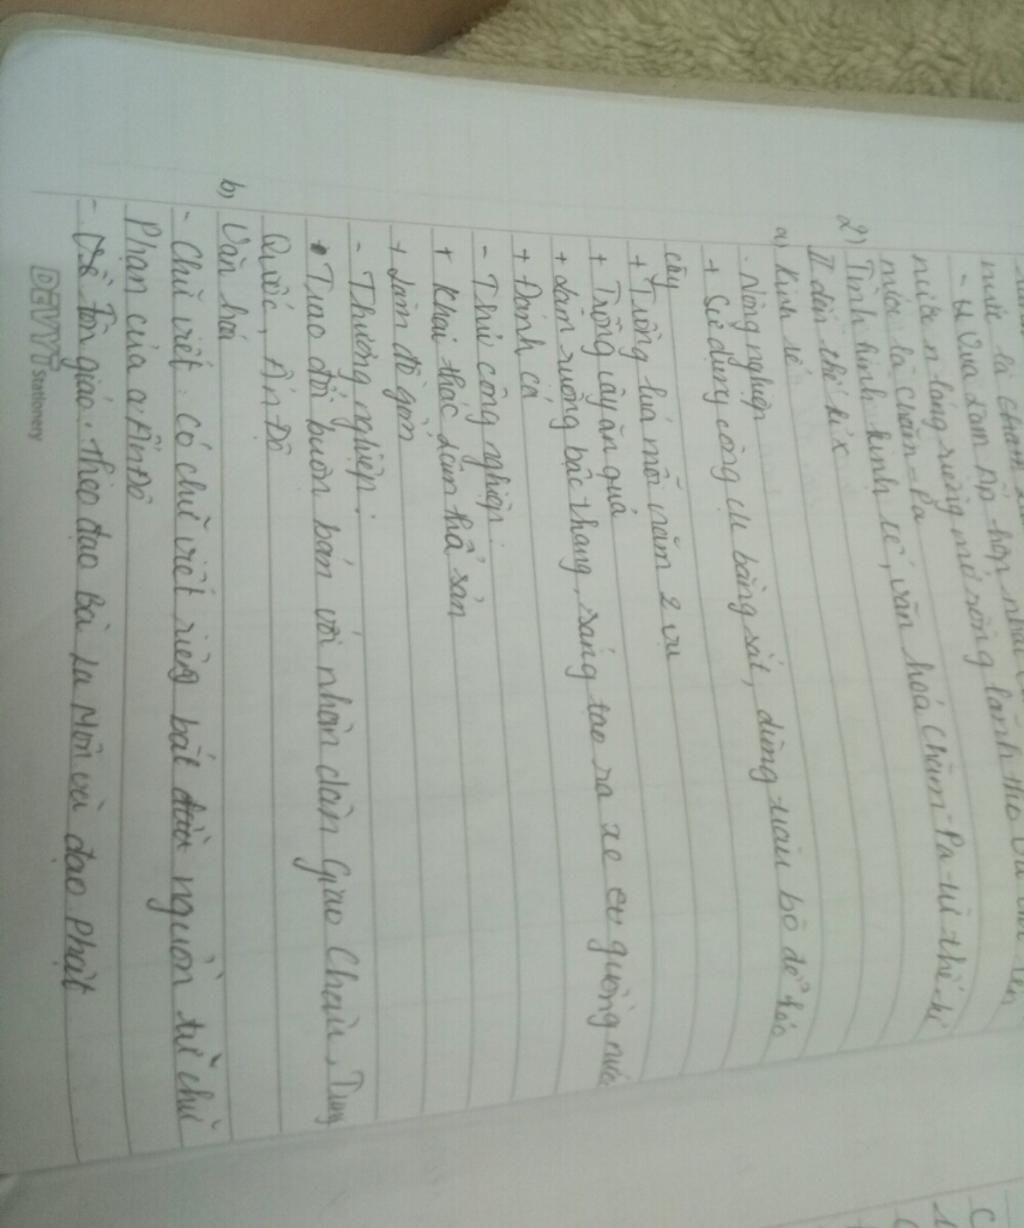 nước là Chăm
- Vua Lâm Ấp hợp
nước láng giềng mở rộng lãnh thổ
nước là Chăm-Pa
2) Tình hình kinh tế, văn hoá Chăm-Pa từ thế kỉ
II đến thế kỉ X
a) Kinh tế
- Nông nghiệp
+ Sử dụng công cụ bằng sắt, dùng trâu bò để kéo
cày
+ Trồng lúa mỗi năm 2 vụ
+ Trồng cây ăn quả
+ Làm ruộng bậc thang, sáng tạo ra xe cư guồng nước
+ Đánh cá
- Thủ công nghiệp
+ Khai thác lâm thổ sản
+ Làm đồ gốm
- Thương nghiệp:
+ Trao đổi buôn bán với nhân dân Giao Châu, Trung
Quốc, Ấn Độ
b) Văn hoá
- Chữ viết: Có chữ viết riêng bắt nguồn từ chữ
Phạn của Ấn Độ
- Về tôn giáo: theo đạo Bà La Môn và đạo Phật
DEVYT Stationery